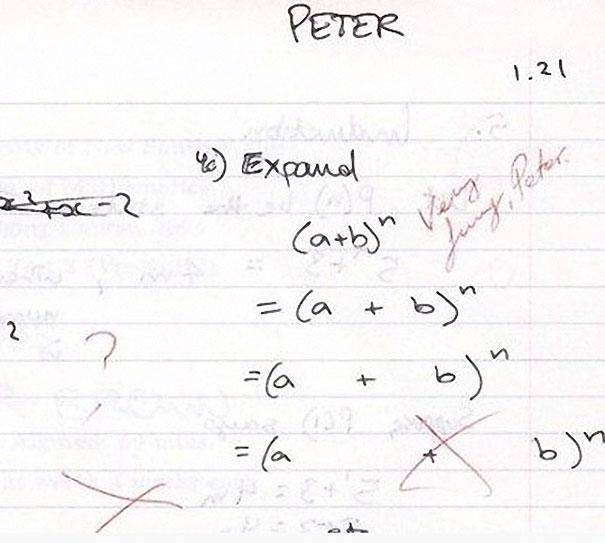 PETER
1.21
4c) Expand
x³+x-2
(a+b)ⁿ
Very funny, Peter.
= (a + b)ⁿ
2
?
=(a + b)ⁿ
= (a + b)ⁿ